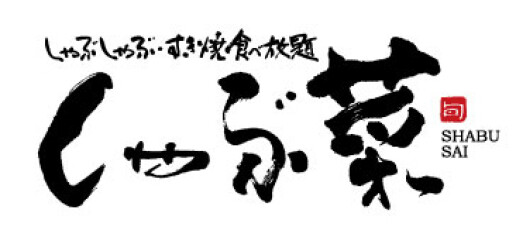 しゃぶしゃぶ・すき焼食べ放題
しゃぶ菜
旬
SHABU
SAI